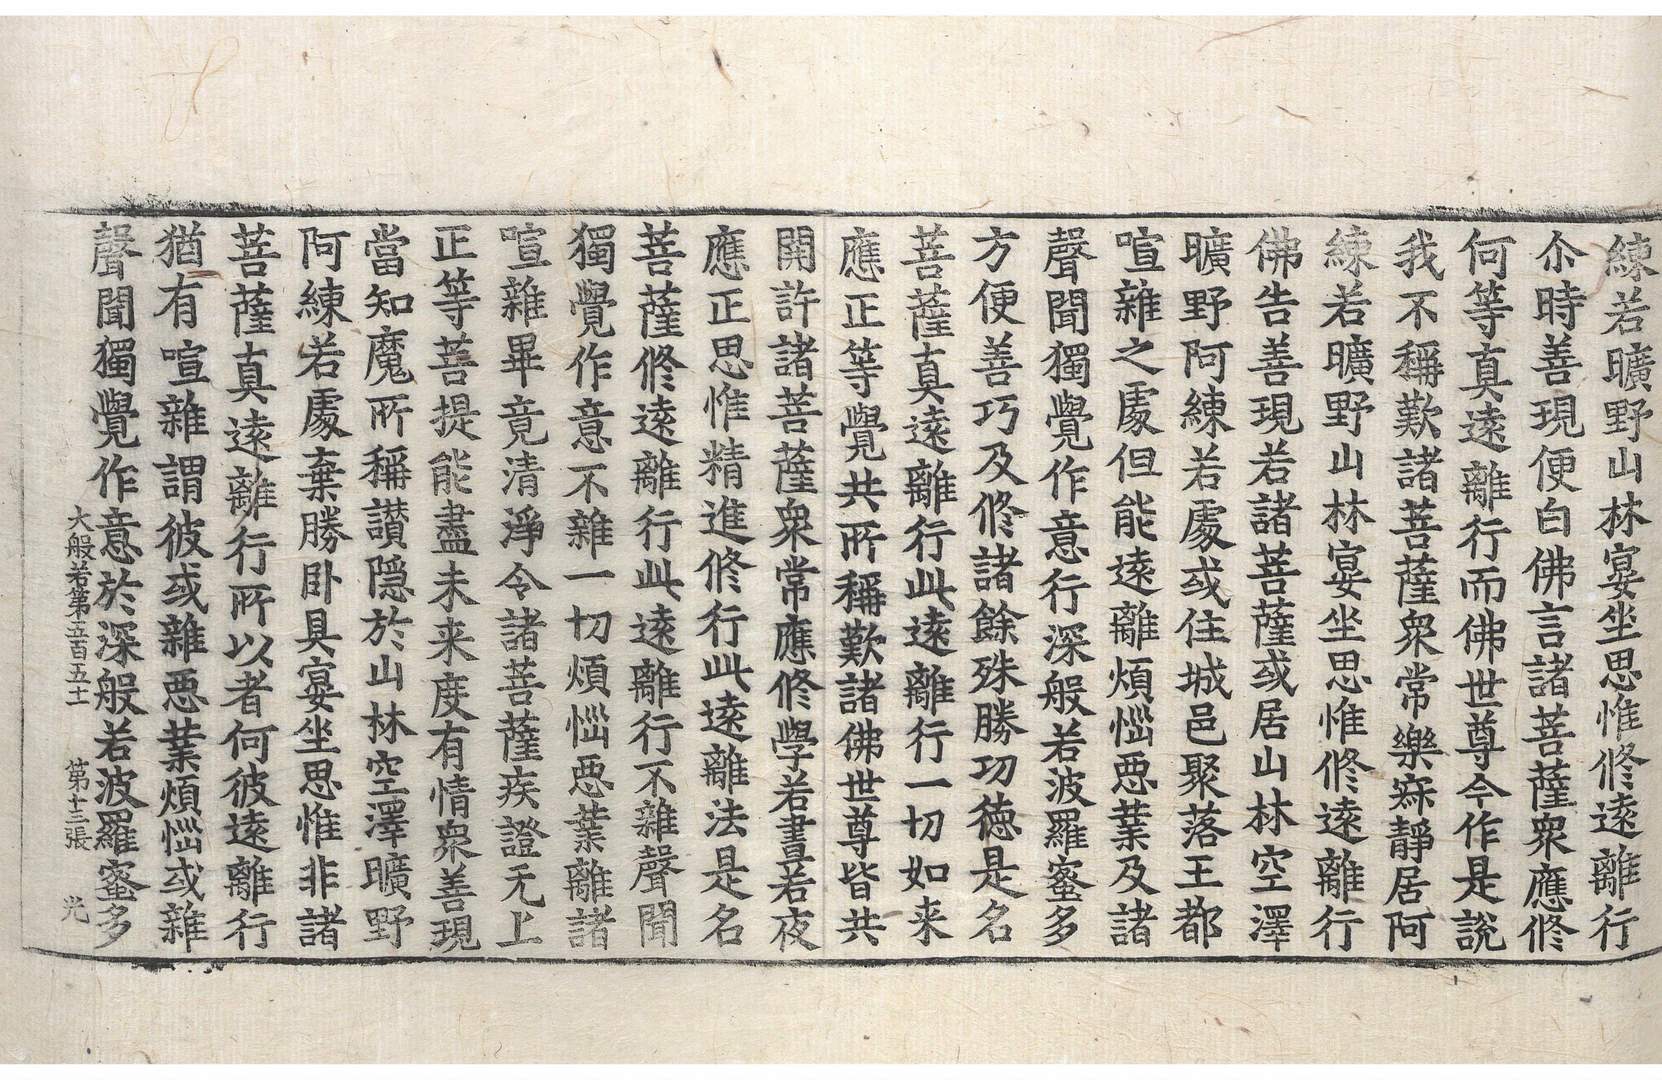 練若曠野山林宴坐思惟修遠離行
尒時善現便白佛言諸菩薩衆應修
何等真遠離行而佛世尊今作是說
我不稱歎諸菩薩衆常樂寂靜居阿
練若曠野山林宴坐思惟修遠離行
佛告善現若諸菩薩或居山林空澤
曠野阿練若處或住城邑聚落王都
喧雜之處但能遠離煩惱惡業及諸
聲聞獨覺作意行深般若波羅蜜多
方便善巧及修諸餘殊勝功德是名
菩薩真遠離行此遠離行一切如来
應正等覺共所稱歎諸佛世尊皆共
開許諸菩薩衆常應修學若晝若夜
應正思惟精進修行此遠離法是名
菩薩修遠離行此遠離行不雜聲聞
獨覺作意不雜一切煩惱惡業離諸
喧雜畢竟清淨令諸菩薩疾證无上
正等菩提能盡未来度有情衆善現
當知魔所稱讃隱於山林空澤曠野
阿練若處棄勝卧具宴坐思惟非諸
菩薩真遠離行所以者何彼遠離行
猶有喧雜謂彼或雜惡業煩惱或雜
聲聞獨覺作意於深般若波羅蜜多
大般若第五百五十 第十三張 光